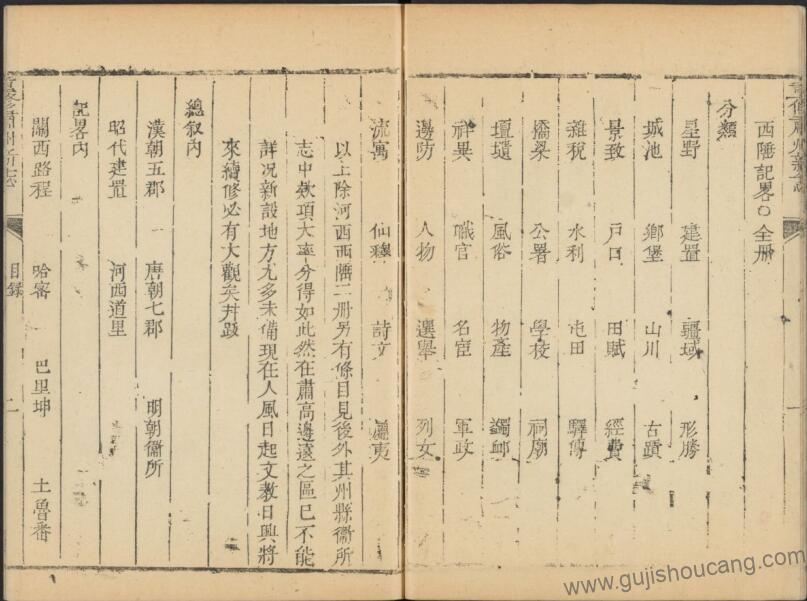 西陲記畧○全册
分類
星野 建置 疆域 形勝
城池 鄉堡 山川 古蹟
景致 戶口 田賦 經費
雜稅 水利 屯田 驛傳
橋梁 公署 學校 祠廟
壇壝 風俗 物產 蠲䘏
祥異 職官 名宦 軍政
邊防 人物 選舉 列女
流寓 仙釋 詩文 屬夷
以上除河西西陲二册另有條目見後外其州縣衛所
志中欵項大率分得如此然在肅高邊遠之區已不能
詳況新設地方尤多未備現在人風日起文教日興將
來續修必有大觀矣幷跋
總叙內
漢朝五郡 唐朝七郡 明朝衞所
昭代建置 河西道里
記畧內
關西路程 哈密 巴里坤 土魯番
重修肅州新志
目錄
二
www.gujishoucang.com